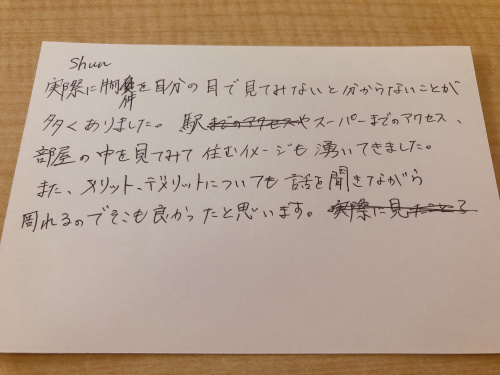 Shun
実際に物件を自分の目で見てみないと分からないことが
多くありました。駅やスーパーまでのアクセス、
部屋の中を見てみて住むイメージも湧いてきました。
また、メリット、デメリットについても話を聞きながら
周れるのでそこも良かったと思います。